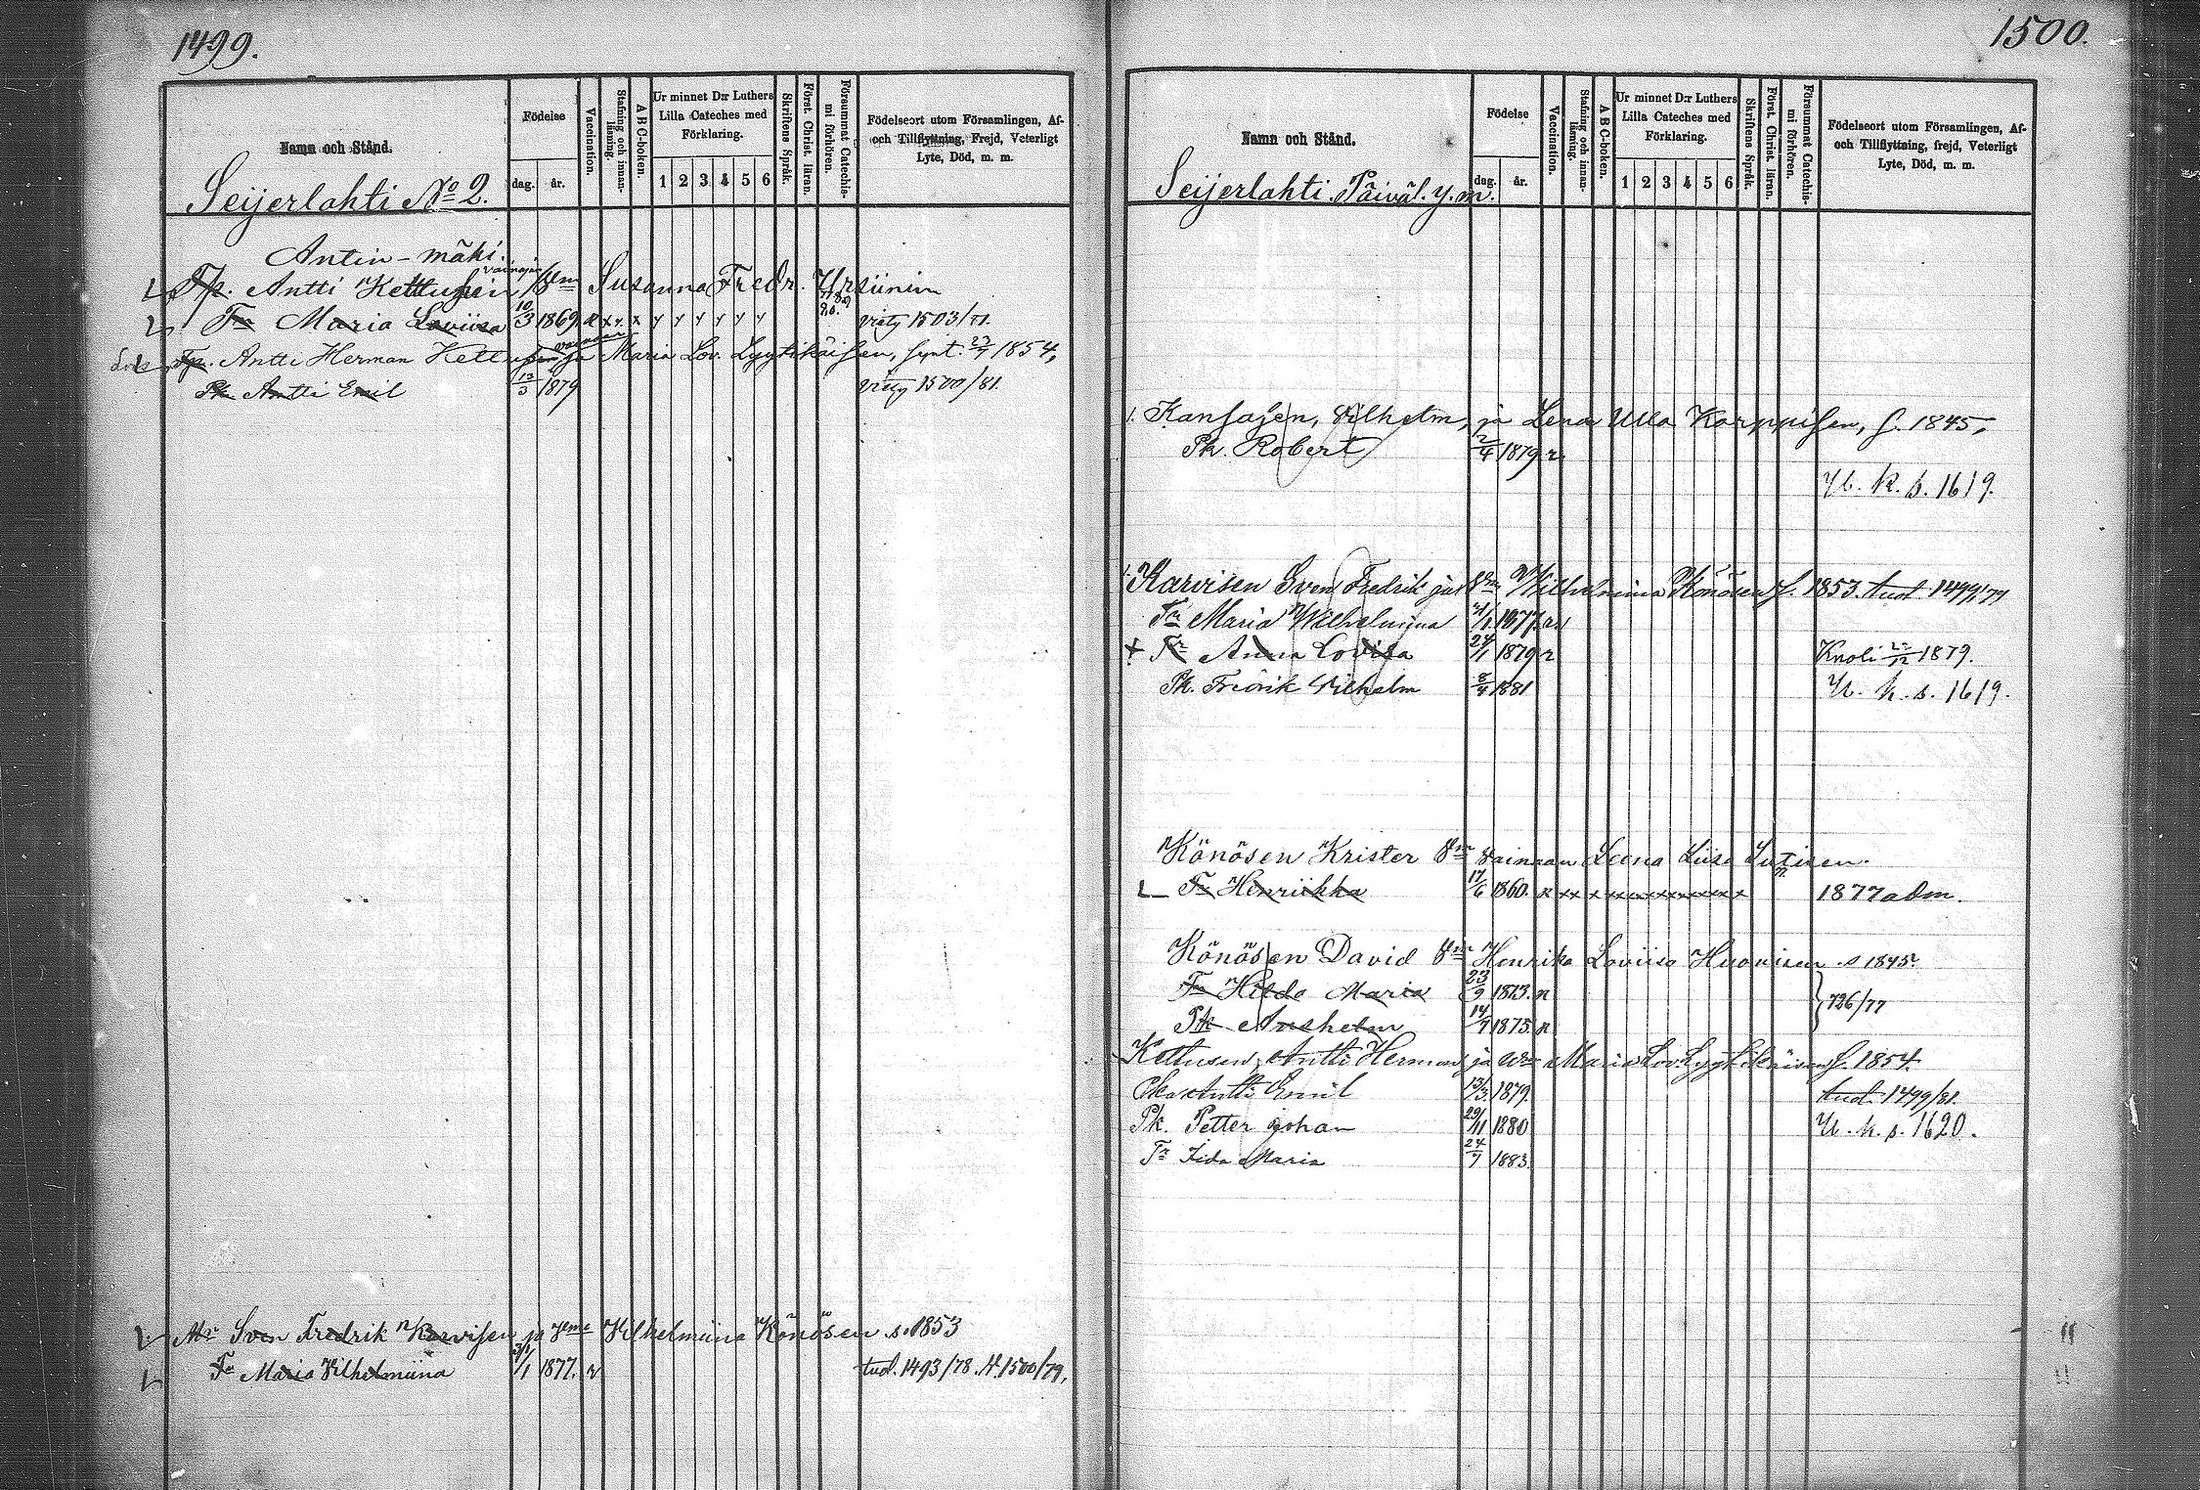 1499.
Namn och Stånd.
Födelse
dag. år.
Vaccination.
Stafning och innanläsning.
A B C-boken.
Ur minnet D:r Luthers Lilla Cateches med Förklaring.
1 2 3 4 5 6
Skriftens Språk.
Först. Christ. läran.
Försummat Catechismi förhören.
Födelseort utom Församlingen, Af- och Tillflyttning, Frejd, Veterligt Lyte, Död, m. m.
Seijerlahti No 2.
Antin-mäki.
Tp. Antti Kettusen Susanna Fredr. Ursiinin
Tr Maria Loviisa 10/3 1869 1503/
Tp. Antti Herman Kettusen ja Maria Lov. Lyytikäisen, synt. 1854,
Pk Antti Emil 13/3 1879 1500/81.
Mr Sven Fredrik Karvisen ja Vilhelmiina Könösen s. 1853
Tr Maria Vilhelmiina 1877. tud. 1493/78. 1500/79,
1500.
Namn och Stånd.
Födelse
dag. år.
Vaccination.
Stafning och innanläsning.
A B C-boken.
Ur minnet D:r Luthers Lilla Cateches med Förklaring.
1 2 3 4 5 6
Skriftens Språk.
Först. Christ. läran.
Försummat Catechismi förhören.
Födelseort utom Församlingen, Af- och Tillflyttning, frejd, Veterligt Lyte, Död, m. m.
Seijerlahti. Päiväl. y. m.
Vilhelm, ja Lena Ulla Karppisen, s. 1845,
Pk. Robert 2/4 1879
k. s. 1619.
Karvisen Sven Fredrik ja Wilhelmina Könösen s. 1853. tud. 1499/79
Tr Maria Wilhelmina 1877.
Tr Anna Lovisa 24/11 1879 Kuoli 1879.
Pk. Fredrik Vilhelm 1881 k. s. 1619.
Könösen Krister vainaan Leena Liisa
Tr Henriikka 17/6 1860. x xx x 1877 adm.
Könösen David Henrika Loviisa s 1845.
Tr Hilda Maria 23/9 1873. 726/77
Pk Anshelm 1875.
Kettusen, Antti Herman ja Maria Lov. Lyytikäisen s. 1854.
Antti Emil 13/3. 1879. tud. 1499/81.
Pk. Petter Johan 29/11 1880 k. s. 1620.
Tr Iida Maria 24/7 1883.